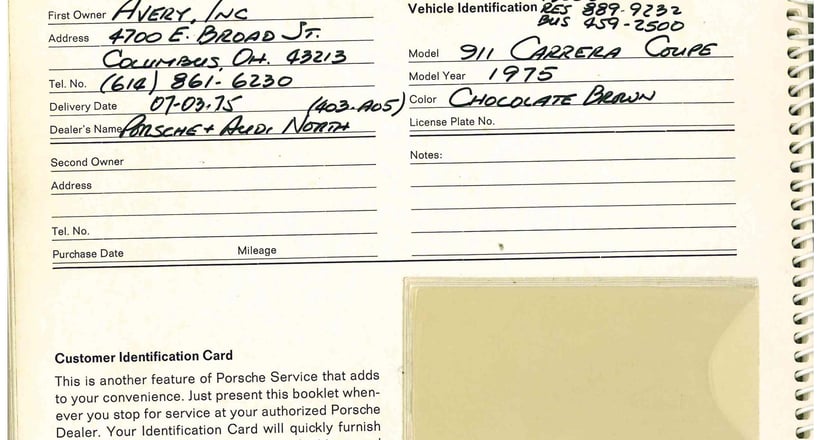 First Owner AVERY, INC
Address 4700 E. BROAD ST.
COLUMBUS, OH. 43213
Tel. No. (614) 861-6230
Delivery Date 07-03-75 (403-A05)
Dealer's Name PORSCHE + AUDI NORTH
Second Owner
Address
Tel. No.
Purchase Date Mileage
Vehicle Identification RES 889-9232
BUS 459-2500
Model 911 CARRERA COUPE
Model Year 1975
Color CHOCOLATE BROWN
License Plate No.
Notes:
Customer Identification Card
This is another feature of Porsche Service that adds
to your convenience. Just present this booklet when-
ever you stop for service at your authorized Porsche
Dealer. Your Identification Card will quickly furnish